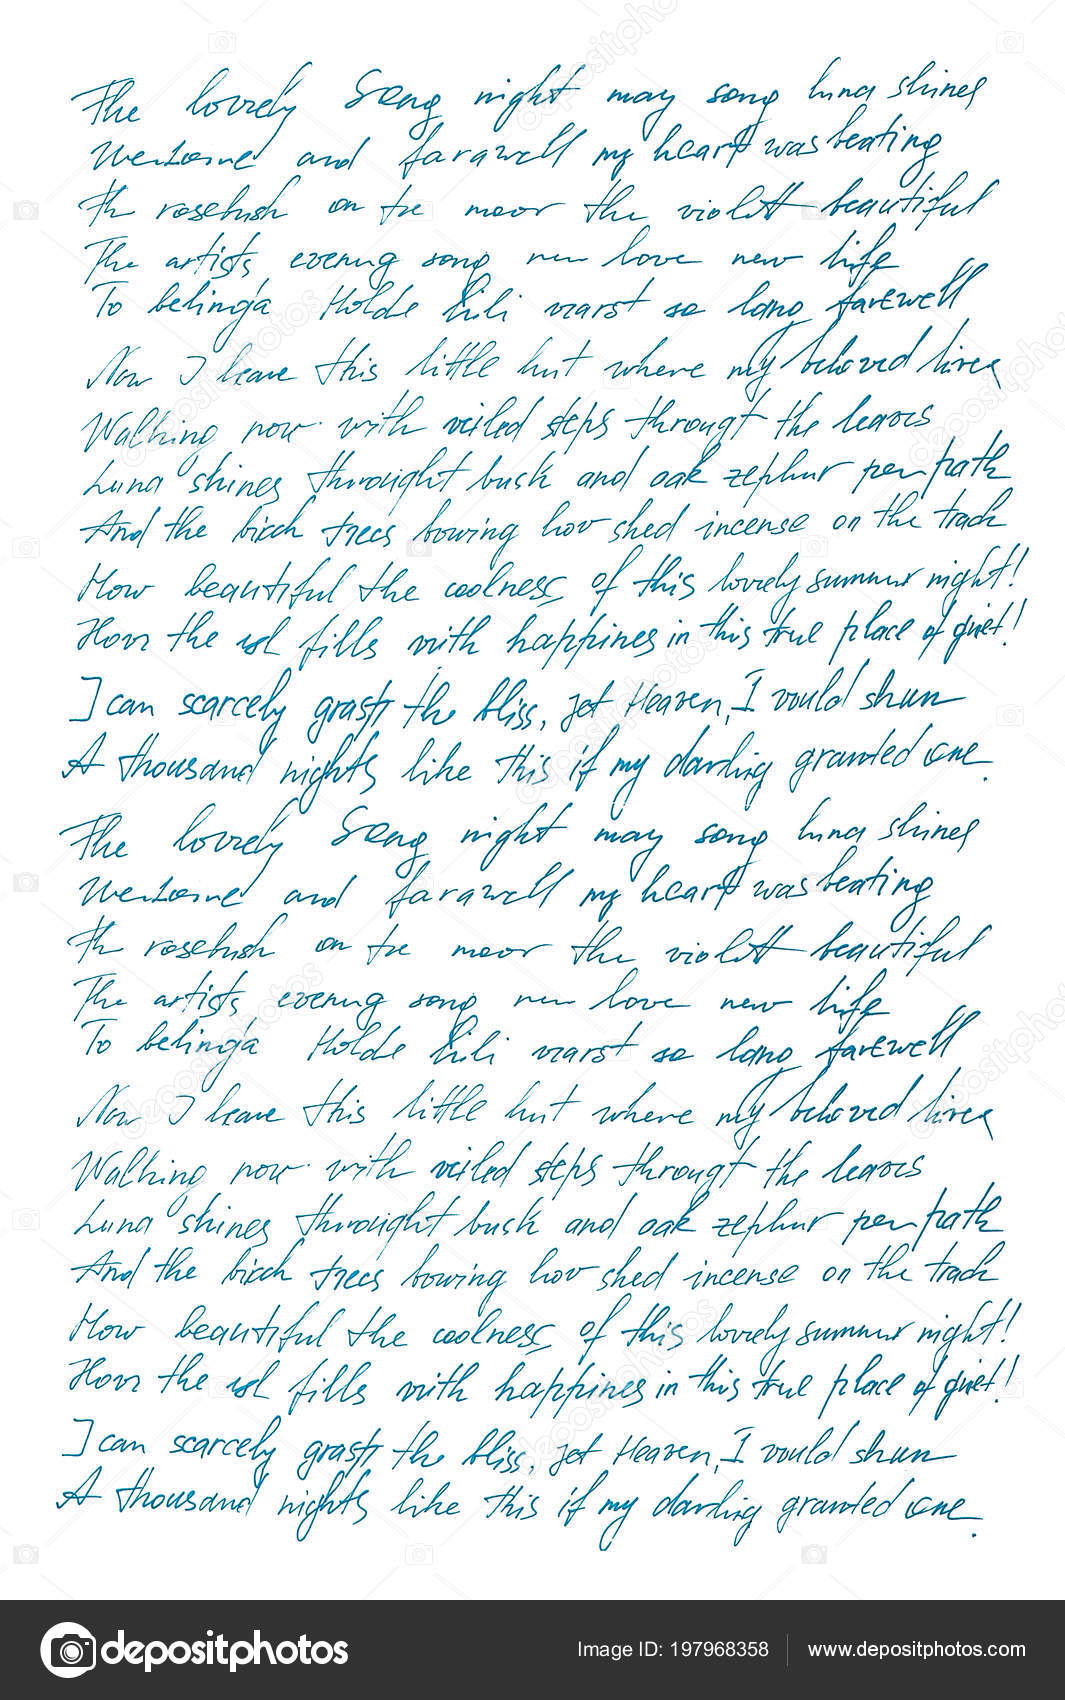 The lovely Song night may song luna shines
Welcome and farawell my heart was beating
Th rosebush on the moor the violett beautiful
The artists evening song new love new life
To belinda Holde Lili warst so long farewell
Now I leave this little hut where my beloved lives
Walking now with veiled steps througt the leavs
Luna shines throught busk and oak zephur per path
And the birch trees bowing hov shed incense on the track
How beautiful the coolness of this lovely summer night!
How the soul fills with happines in this true place of quiet!
I can scarcely grasp the bliss, jet Heaven, I would shun
A thousand nights like this if my darling granted one.
The lovely Song night may song luna shines
Welcome and farawell my heart was beating
Th rosebush on the moor the violett beautiful
The artists evening song new love new life
To belinda Holde Lili warst so long farewell
Now I leave this little hut where my beloved lives
Walking now with veiled steps througt the leavs
Luna shines throught busk and oak zephur per path
And the birch trees bowing hov shed incense on the track
How beautiful the coolness of this lovely summer night!
How the soul fills with happines in this true place of quiet!
I can scarcely grasp the bliss, jet Heaven, I would shun
A thousand nights like this if my darling granted one.
depositphotos
Image ID: 197968358 www.depositphotos.com